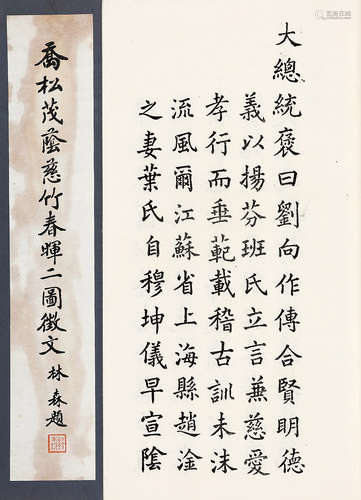 大總統褒曰劉向作傳合賢明德
義以揚芬班氏立言蕪慈愛
孝行而垂範載稽古訓未沫
流風爾江蘇省上海縣趙淦
之妻葉氏自穆坤儀早宣陰
喬松茂蔭慈竹春暉二圖徵文
林森題